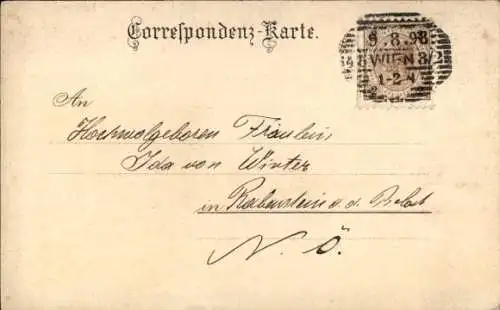 Correspondenz-Karte.
9.8.98
WIEN 8/2
1-2-N
An
Hochwolgeboren Fräulein
Ida von Winter
in Rabenstein a. d. Pielach
N. Ö.